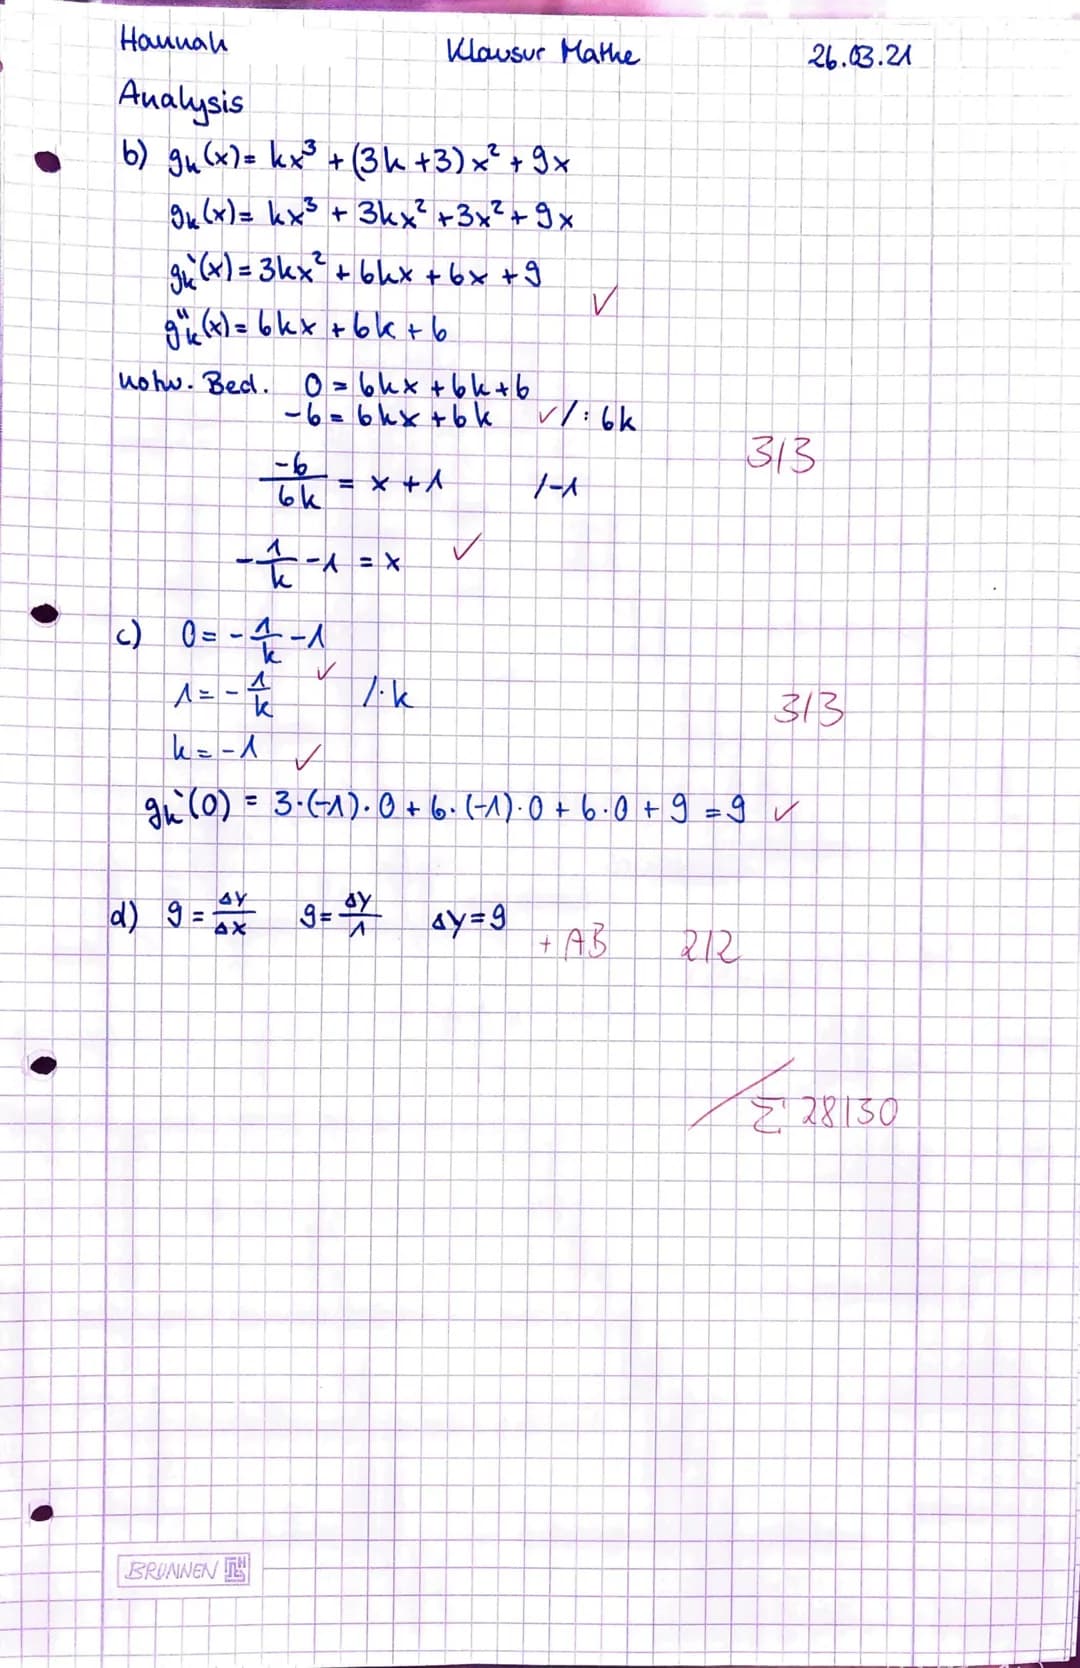 Hannah Klausur Mathe 26.03.21
Analysis
b) gₖ(x) = kx³ + (3k+3)x² + 9x
gₖ(x) = kx³ + 3kx² + 3x² + 9x
gₖ'(x) = 3kx² + 6kx + 6x + 9
✓
gₖ''(x) = 6kx + 6k + 6
notw. Bed. 0 = 6kx + 6k + 6
-6 = 6kx + 6k ✓ /: 6k
3/3
-6/6k = x + 1 /-1
-1/k - 1 = x ✓
c) 0 = -1/k - 1
✓
1 = -1/k /·k
3/3
k = -1 ✓
gₖ'(0) = 3·(-1)·0 + 6·(-1)·0 + 6·0 + 9 = 9 ✓
d) 9 = ΔY/ΔX 9 = ΔY/1 ΔY = 9
+ AB 2/2
Σ 28/30
BRUNNEN